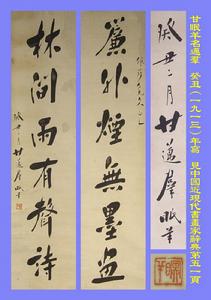 甘眠羊名邁羣 癸丑(一九一三)年寫 見中國近現代書畫家辭典第五一頁
癸丑二月甘邁羣眠羊
簾外煙無墨畫
林間雨有聲詩
癸丑二月甘邁羣眠羊